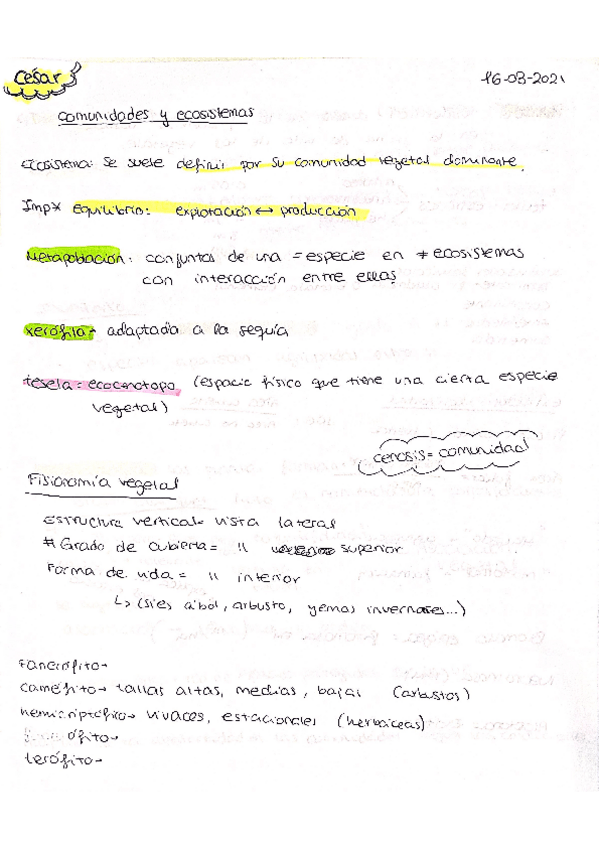 César
16-03-2021
comunidades y ecosistemas
Ecosistema: Se suele definir por su comunidad vegetal dominante.
Imp* Equilibrio: explotación ↔ producción
Metapoblación: conjuntos de una = especie en ≠ ecosistemas
con interacción entre ellas
xerófita → adaptada a la sequía
tesela = ecocenotopo (espacio físico que tiene una cierta especie
vegetal)
cenosis = comunidad
Fisionomía vegetal
Estructura vertical → vista lateral
# Grado de cubierta = " superior
Forma de vida = " interior
↳ (si es árbol, arbusto, yemas invernales...)
Fanerófito →
caméfito → tallas altas, medias, bajas (arbustos)
hemicriptófito → vivaces, estacionales (herbáceas)
terófito →